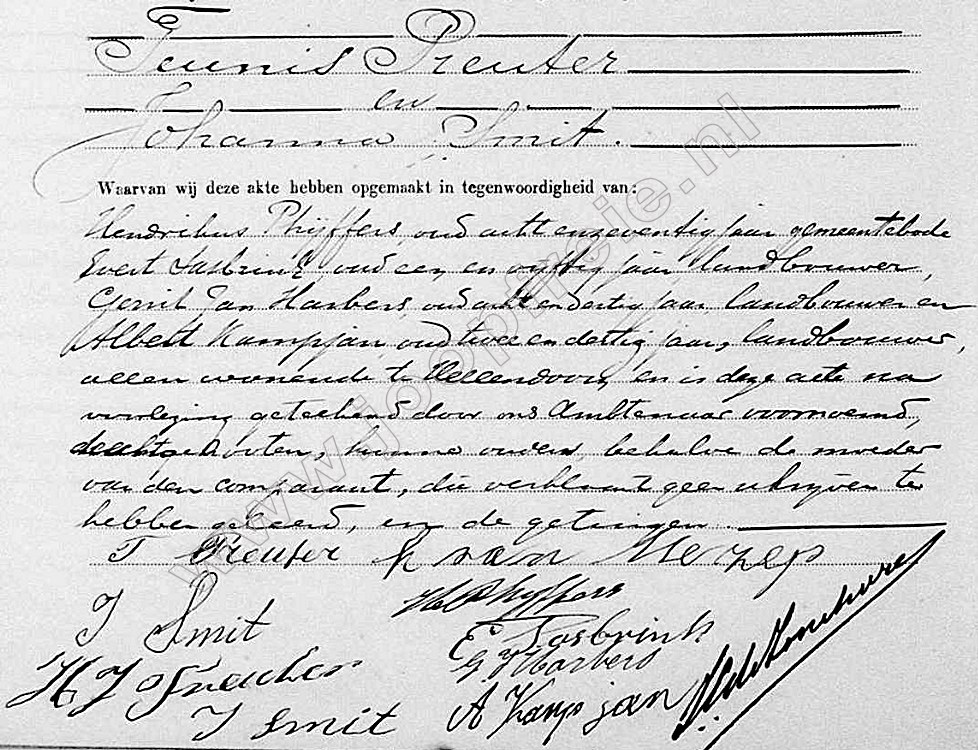 Teunis Preuter
en
Johanna Smit.
Waarvan wij deze akte hebben opgemaakt in tegenwoordigheid van:
Hendrikus Phijffers, oud acht en zeventig jaar gemeentebode
Evert Lasbrink oud een en vijftig jaar landbouwer,
Gerrit Jan Harbers oud acht en dertig jaar, landbouwer en
Albert Kampjan, oud twee en dertig jaar, landbouwer,
allen wonende te Hellendoorn, en is deze acte na
voorlezing geteekend door ons Ambtenaar voornoemd,
de echtgenooten, hunne ouders, behalve de moeder
van den comparant, die verklaart geen schrijven te
hebben geleerd, en de getuigen
T Preuter h van
J Smit
H Phyffers
E Lasbrink
G J Harbers
H J Preuter
J Smit
A Kampjan
www.joptrie.nl